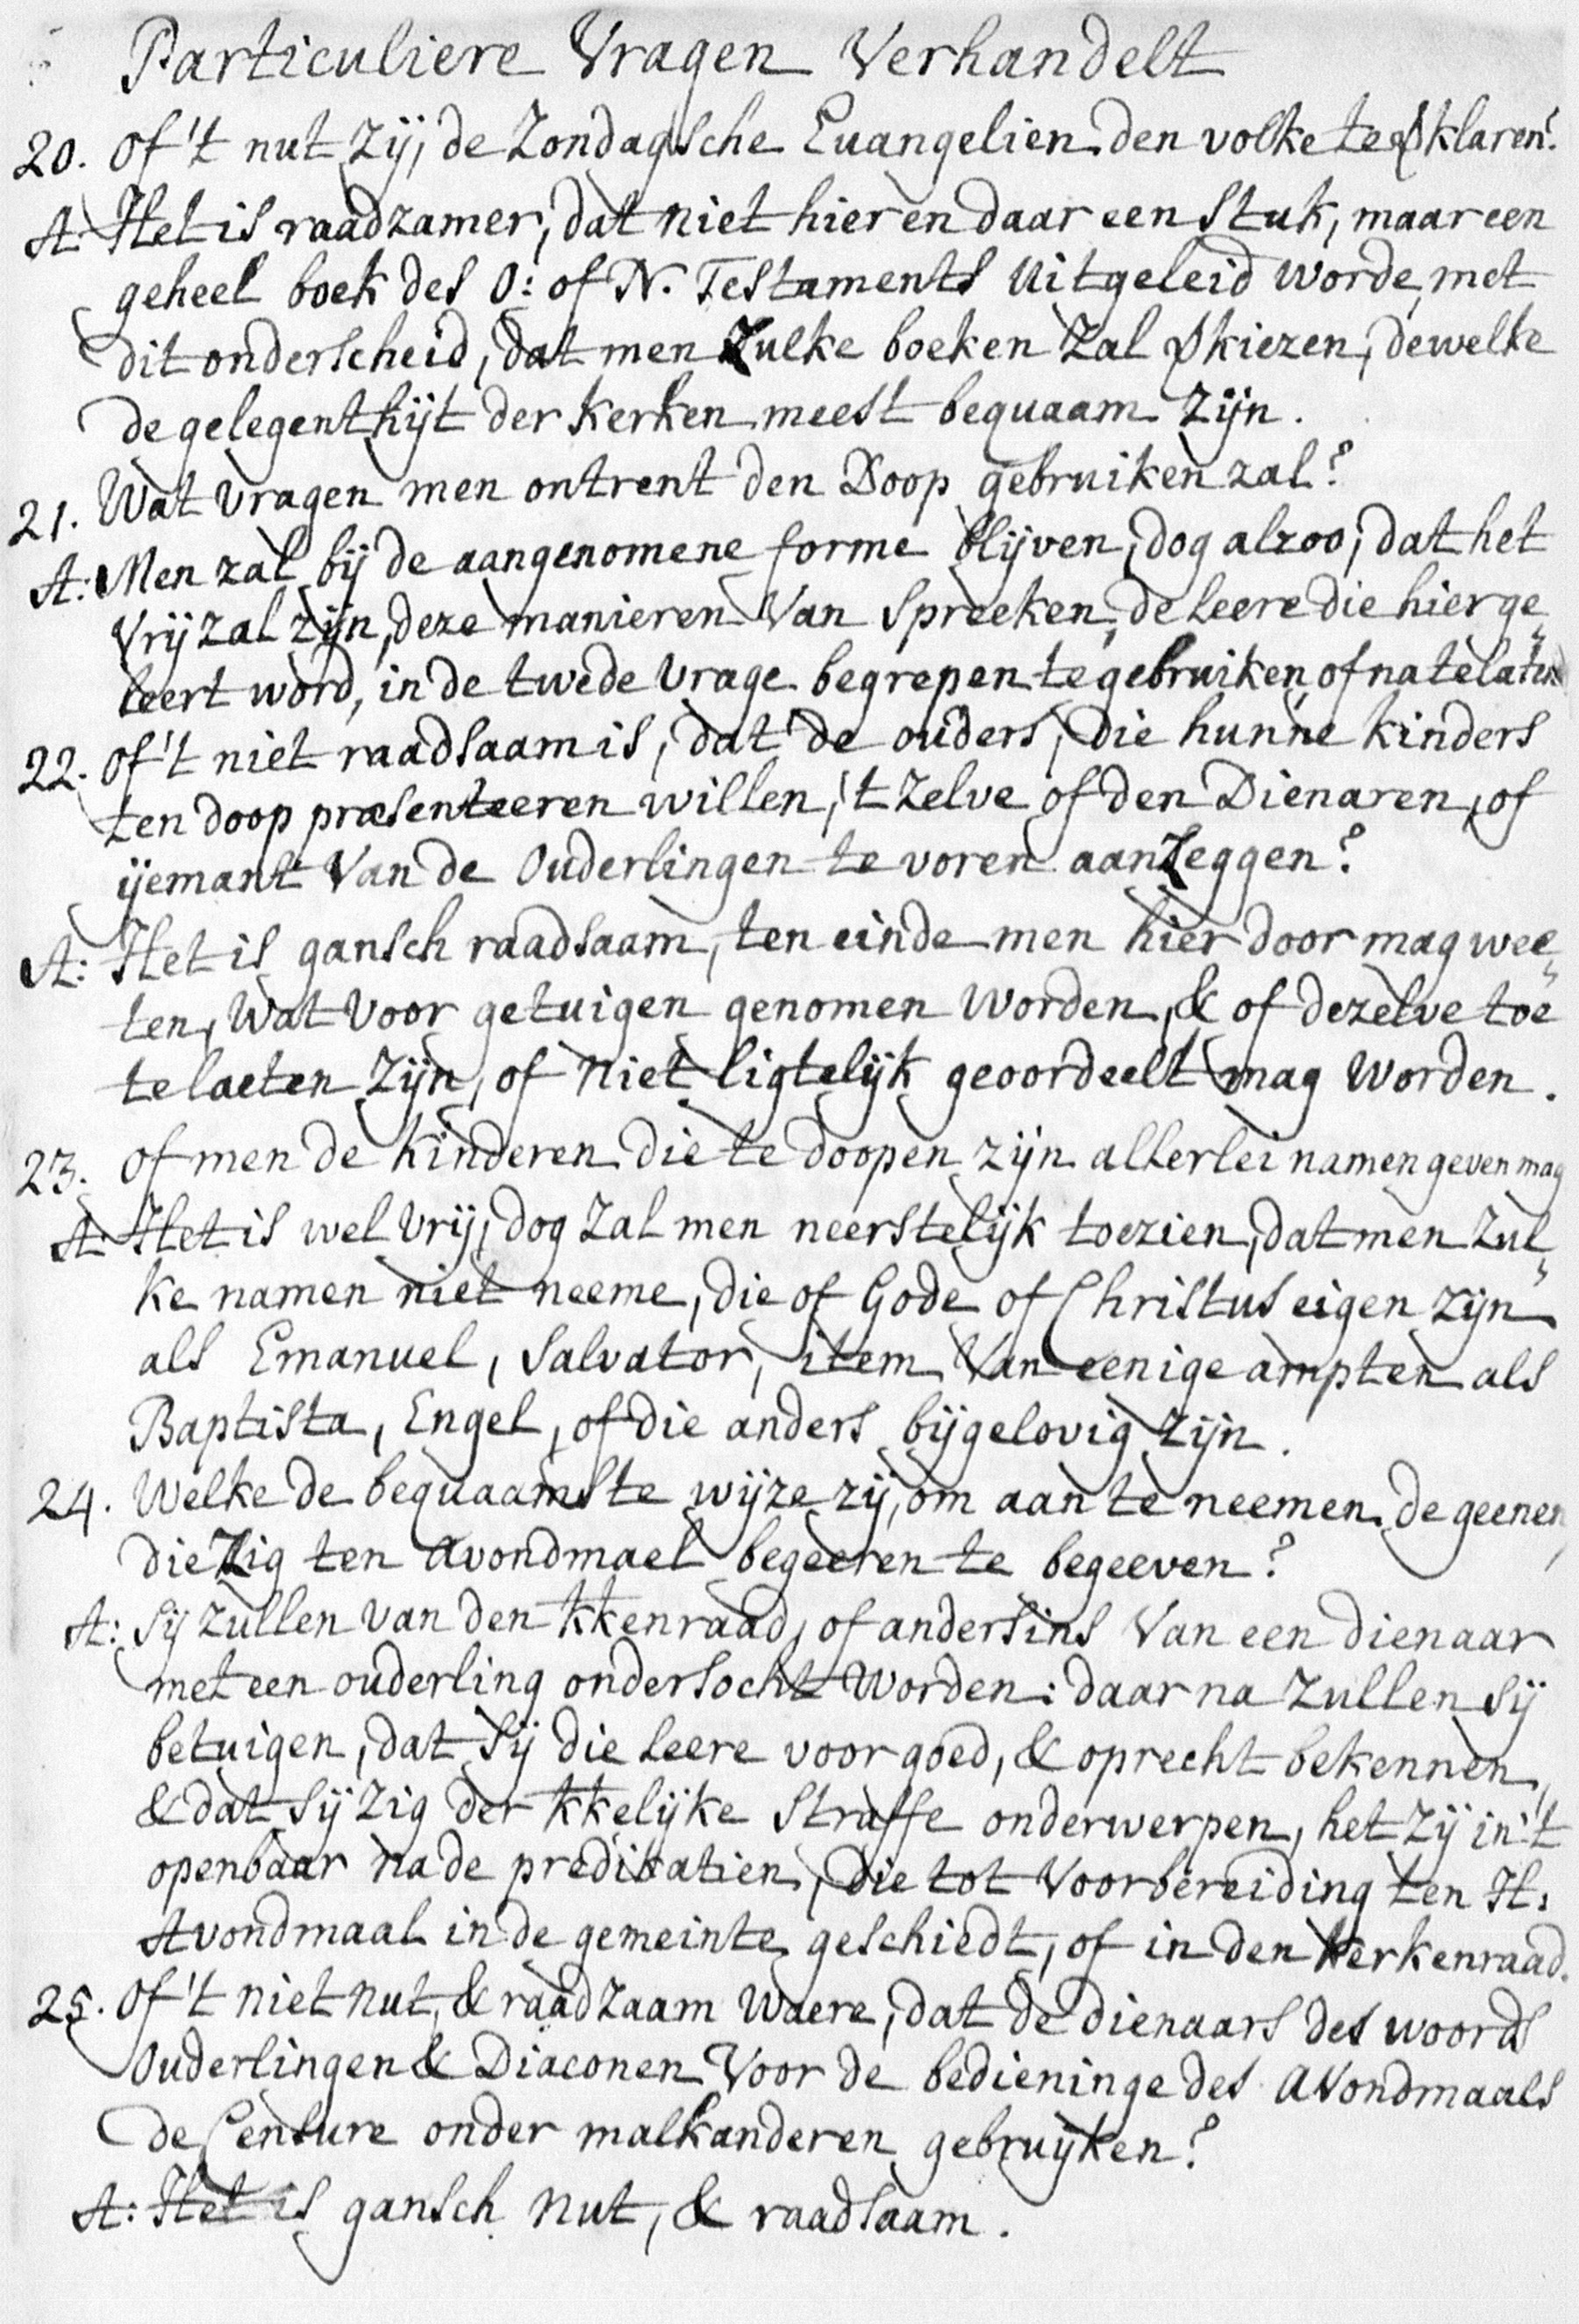 Particuliere Vragen Verhandelt
20. Of 't nut zij, de Zondagsche Euangelien den volke te klaren?
A: Het is raadzamer, dat niet hier en daar een stuk, maar een
geheel boek des O: of N. Testaments uitgeleid worde, met
dit onderscheid, dat men zulke boeken zal kiezen, dewelke
de gelegenthijt der kerken meest bequaam zijn.
21. Wat vragen men ontrent den Doop gebruiken zal?
A: Men zal bij de aangenomene forme blijven, dog alzoo, dat het
vrij zal zijn, deze manieren van spreeken, de leere die hier ge„
leert word, in de twede vrage begrepen te gebruiken of na te laten
22. Of 't niet raadsaam is, dat de ouders, die hunne kinders
ten doop præsenteeren willen, 't zelve of den Dienaren, of
ijemant van de Ouderlingen te voren aanzeggen?
A: Het is gansch raadsaam, ten einde men hier door mag wee„
ten, wat voor getuigen genomen worden, & of dezelve toe
te laeten zijn, of niet ligtelijk geoordeelt mag worden.
23. Of men de kinderen die te doopen zijn allerlei namen geven mag
A: Het is wel vrij, dog zal men neerstelijk toezien, dat men zul„
ke namen niet neeme, die of Gode of Christus eigen zijn
als Emanuel, Salvator, item van eenige ampten als
Baptista, Engel, of die anders bijgelovig zijn.
24. Welke de bequaamste wijze zij, om aan te neemen de geenen
die zig ten avondmael begeeren te begeeven?
A: Sij zullen van den kkenraad, of andersins van een dienaar
met een ouderling ondersocht worden: daar na zullen sij
betuigen, dat sij die leere voor goed, & oprecht bekennen,
& dat sij zig der kkelijke straffe onderwerpen, het zij in 't
openbaar na de predikatien, die tot voorbereiding ten H:
Avondmaal in de gemeinte geschiedt, of in den kerkenraad.
25. Of 't niet nut, & raadzaam waere, dat de dienaars des woords
Ouderlingen & Diaconen voor de bedieninge des avondmaals
de Censure onder malkanderen gebruijken?
A: Het is gansch nut, & raadsaam.